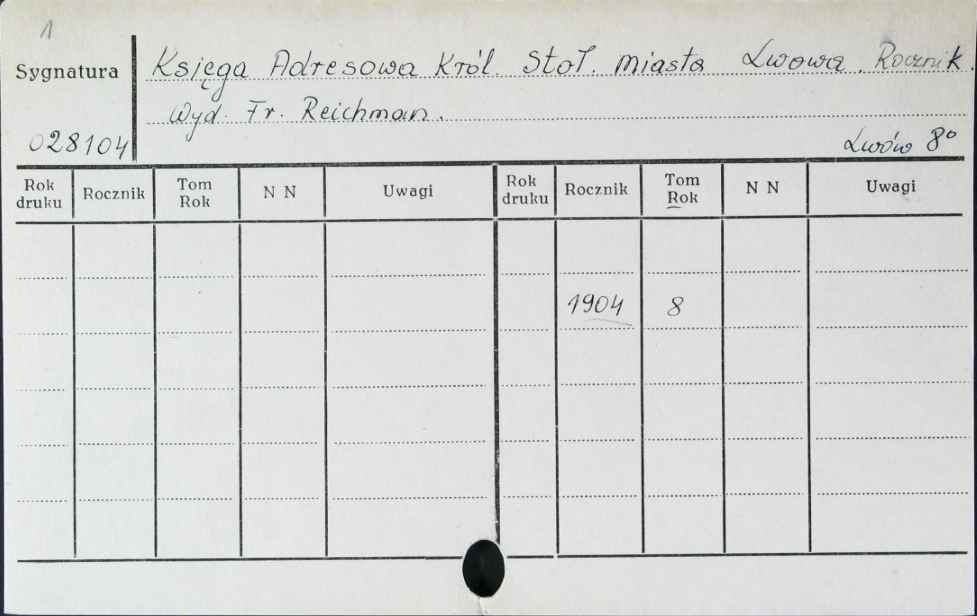 1
Sygnatura
Księga Adresowa Król. Stoł. miasta Lwowa. Rocznik.
Wyd. Fr. Reichman.
028104
Lwów 8°
Rok druku Rocznik Tom Rok N N Uwagi Rok druku Rocznik Tom Rok N N Uwagi
1904 8